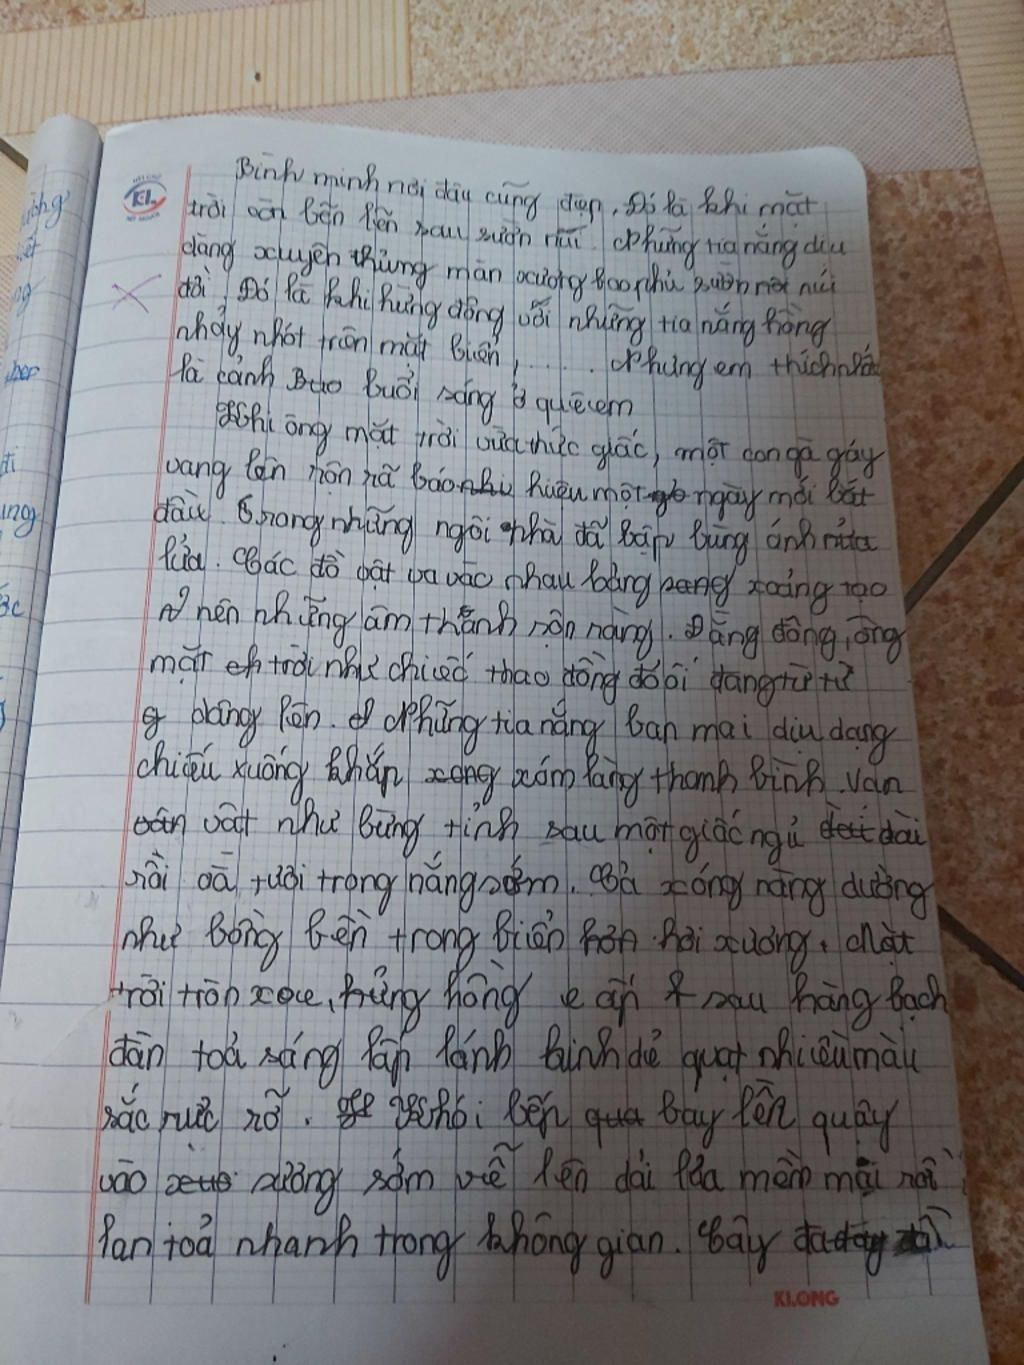 Bình minh nơi đâu cũng đẹp. Đó là khi mặt
trời vén bén lên sau sườn núi. Những tia nắng dịu
dàng xuyên thủng màn sương bao phủ sườn núi
đồi. Đó là khi hừng đông với những tia nắng hồng
nhảy nhót trên mặt biển, ..... Nhưng em thích nhất
là cảnh Bao buổi sáng ở quê em
Khi ông mặt trời vừa thức giấc, một con gà gáy
vang lên rộn rã báo hiệu một ngày mới bắt
đầu. Trong những ngôi nhà đã bập bùng ánh
lửa. Các đồ vật va vào nhau loảng xoảng tạo
nên những âm thanh rộn ràng. Đằng đông, ông
mặt trời như chiếc thao đồng đỏ ối đang từ từ
dâng lên. Những tia nắng ban mai dịu dạng
chiếu xuống khắp xóm làng thanh bình. Vạn
vật như bừng tỉnh sau một giấc ngủ dài
rồi oà tươi trong nắng sớm. Cả xóng nàng dường
như bồng bền trong biển hơi sương. Mặt
trời tròn xoe, hửng hồng e ấp sau hàng bạch
đàn toả sáng lấp lánh hình dẻ quạt nhiều màu
sắc rực rỡ. Khói bếp bay lên quây
vào sương sớm vẽ lên dải lụa mềm mại rồi
lan toả nhanh trong không gian. Cây
KLONG